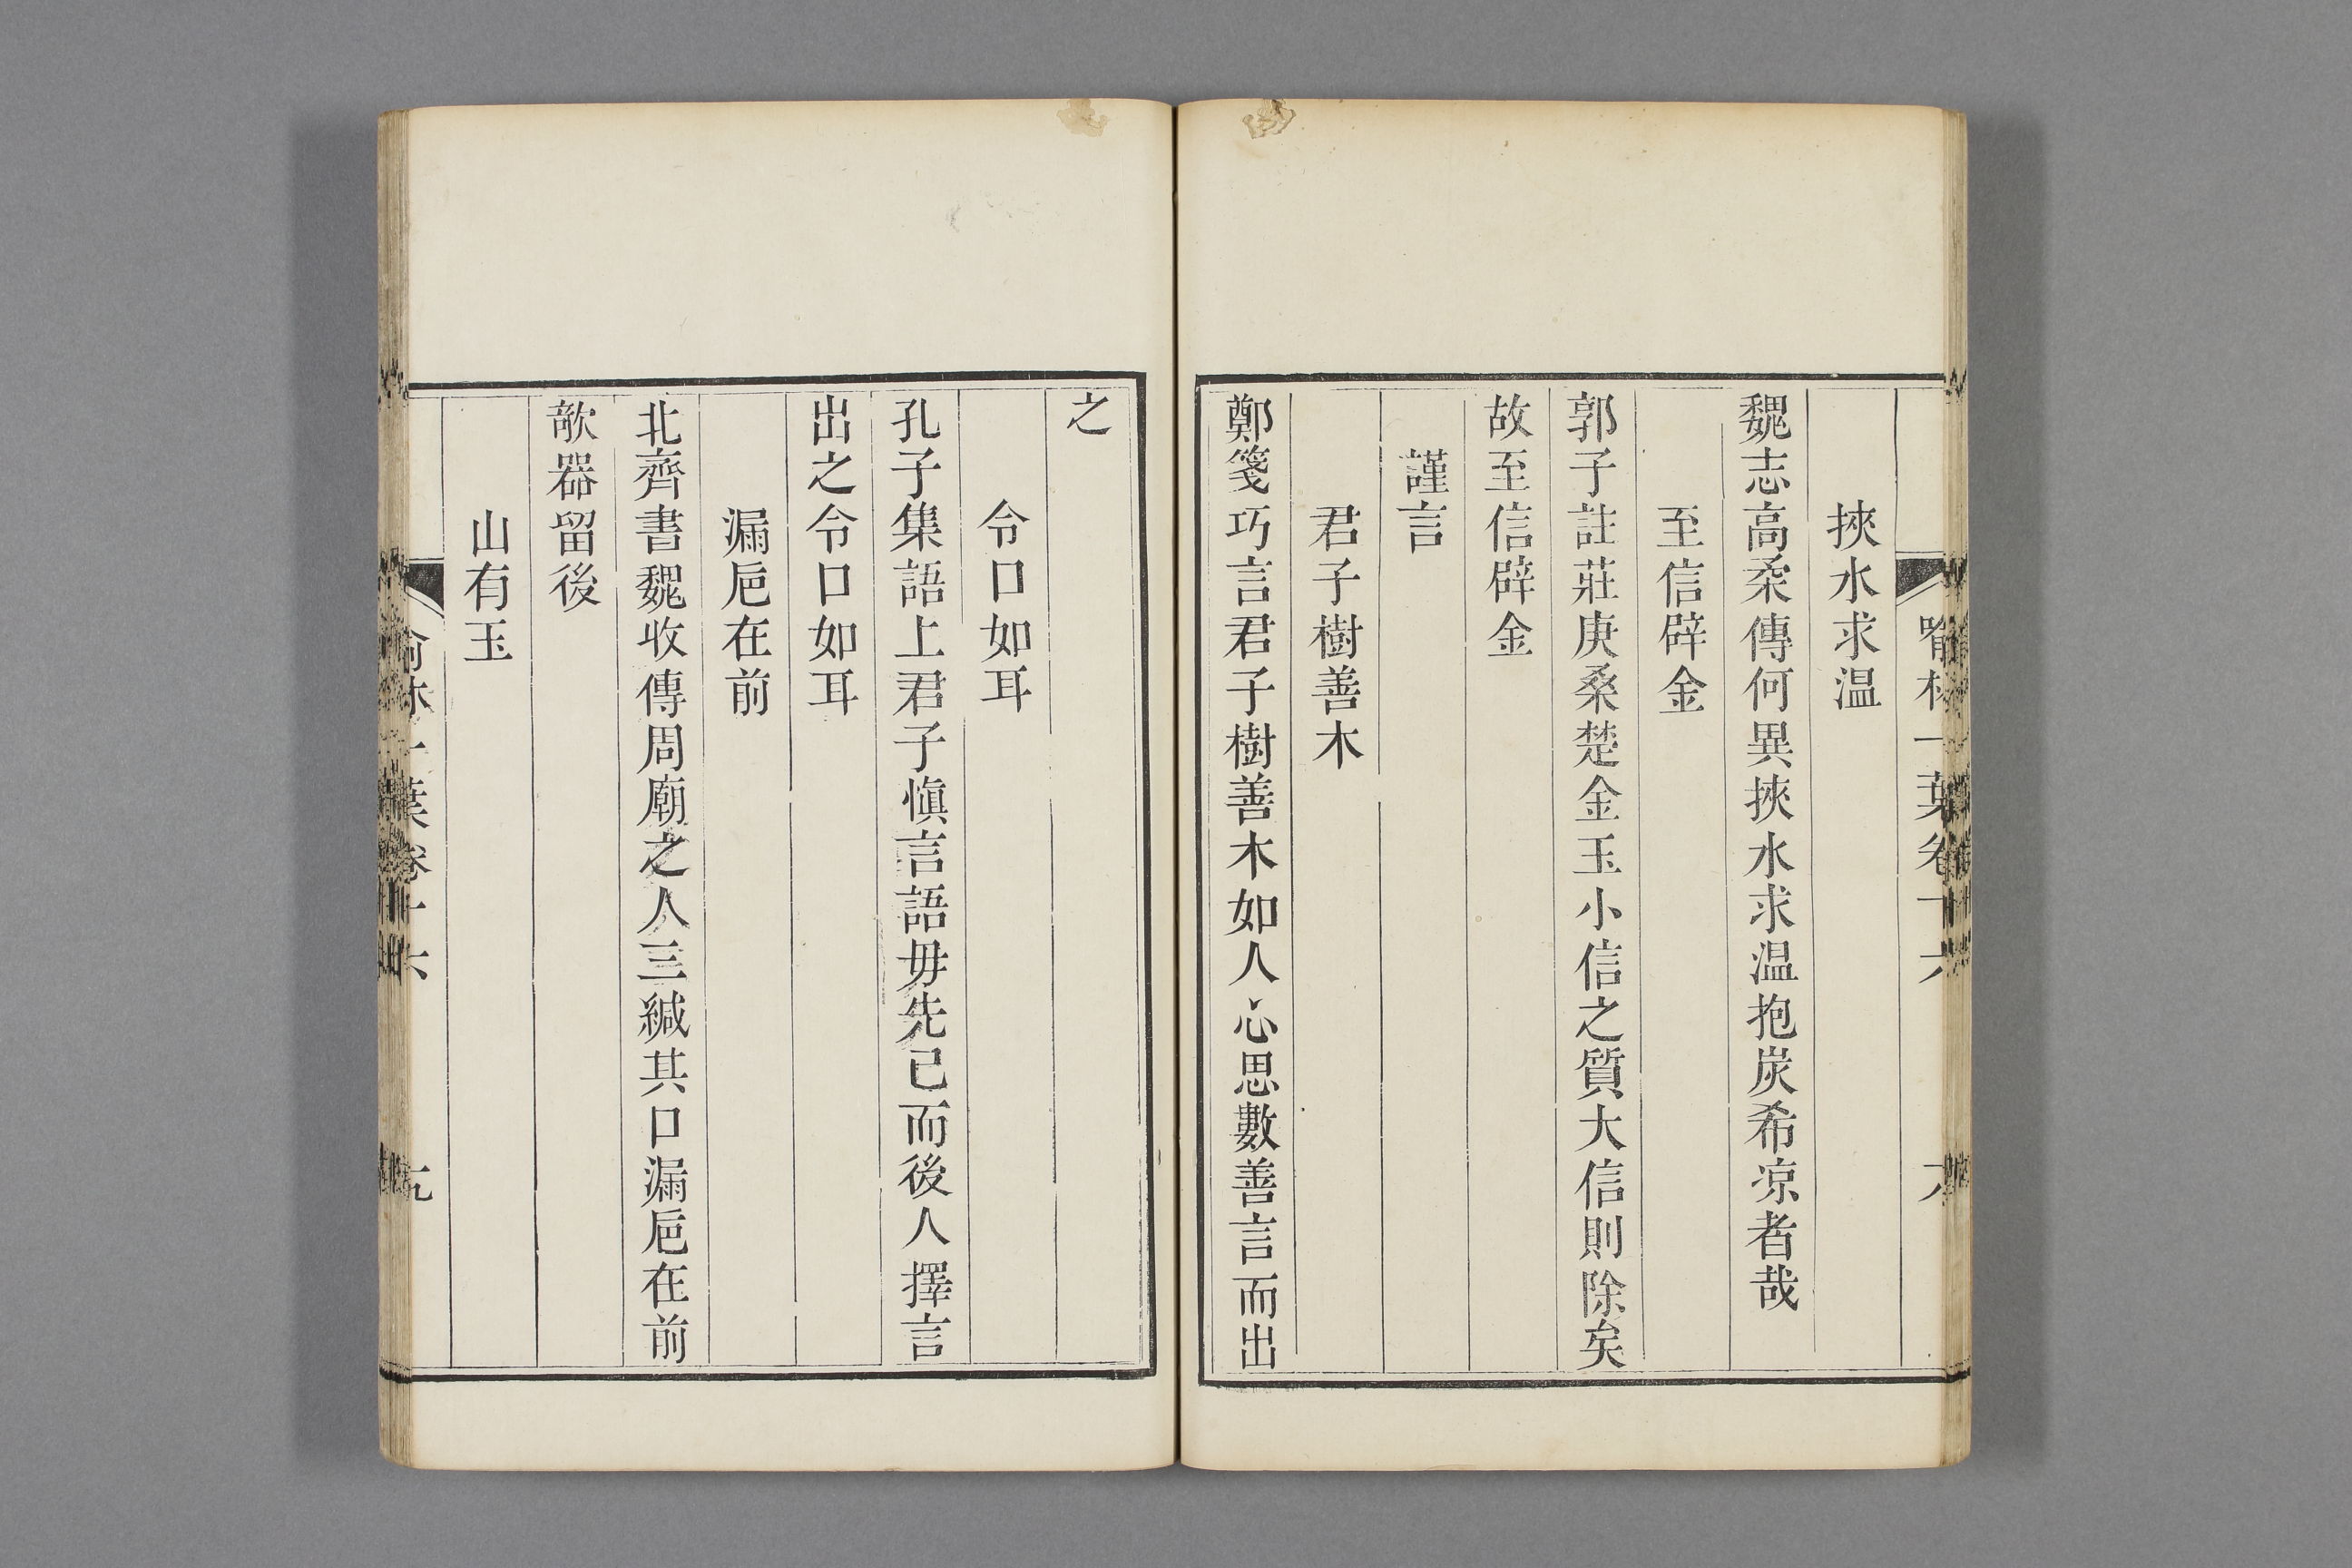 喻林一葉卷十六
挾水求温
魏志高柔傳何異挾水求温抱炭希凉者哉
至信辟金
郭子註莊庚桑楚金玉小信之質大信則除矣
故至信辟金
謹言
君子樹善木
鄭箋巧言君子樹善木如人心思數善言而出
之
令口如耳
孔子集語上君子愼言語毋先已而後人擇言
出之令口如耳
漏巵在前
北齊書魏收傳周廟之人三緘其口漏巵在前
欹器留後
山有玉
喻林一葉卷十六